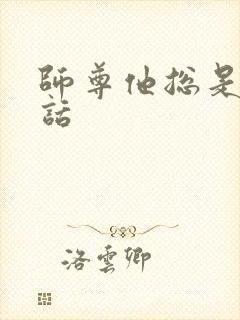 師尊他总是
話
洛雲卿